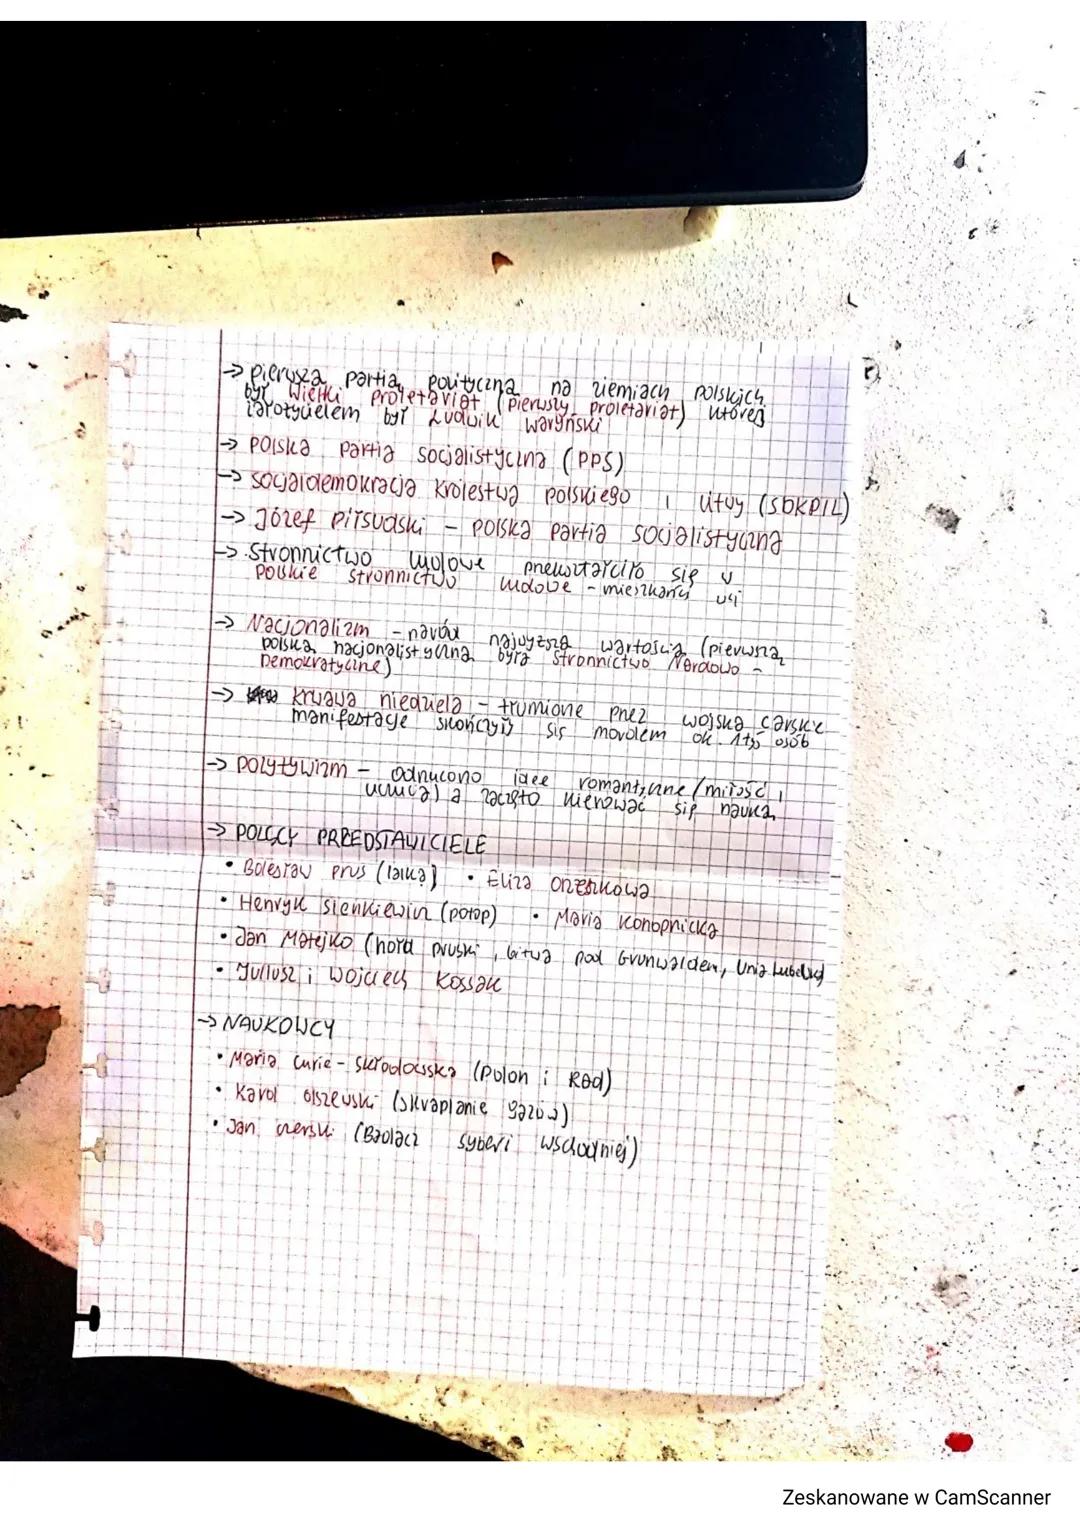 → pierwsza partią polityczną na ziemiach polskich
był Wielki proletariat (pierwszy proletariat) której
założycielem był Ludwik Waryński
→ Polska partia socjalistyczna (PPS)
→ socjaldemokracja Królestwa polskiego i Litwy (SDKPIL)
→ Józef Piłsudski - polska partia socjalistyczna
→ Stronnictwo ludowe przekształciło się w
polskie stronnictwo ludowe - mieszkańcy wsi
→ Nacjonalizm - naród najwyższą wartością (pierwszą
polską nacjonalistyczną była stronnictwo Nardowo -
Demokratyczne)
→ krwawa niedziela - tłumione przez wojska carskie
manifestacje skończyły się mordem ok. osób
→ pozytywizm - odrzucono idee romantyczne (miłość i
uczucia) a zaczęto kierować się nauką
→ POLSCY PRZEDSTAWICIELE
• Bolesław prus (lalka) • Eliza orzeszkowa
• Henryk Sienkiewicz (potop) • Maria Konopnicka
• Jan Matejko (hołd pruski, bitwa pod Grunwaldem, Unia Lubelska)
• Juliusz i Wojciech Kossak
→ NAUKOWCY
• Maria Curie - Skłodowska (Polon i Rad)
• Karol Olszewski (skraplanie gazów)
• Jan czerski (Badacz syberi wschodniej)
Zeskanowane w CamScanner